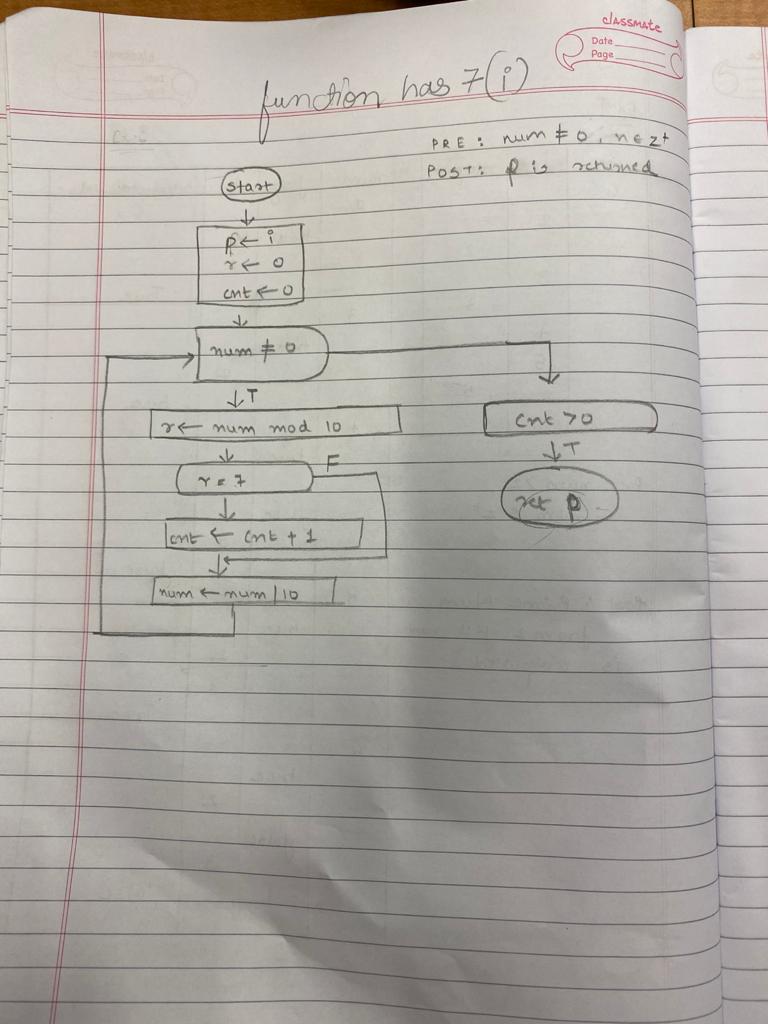 classmate
Date
Page
function has 7(i)
PRE : num ≠ 0, n ∈ z+
POST: p is returned
start
p ← i
r ← 0
cnt ← 0
num ≠ 0
T
r ← num mod 10
cnt > 0
T
F
r = 7
ret p
cnt ← cnt + 1
num ← num / 10